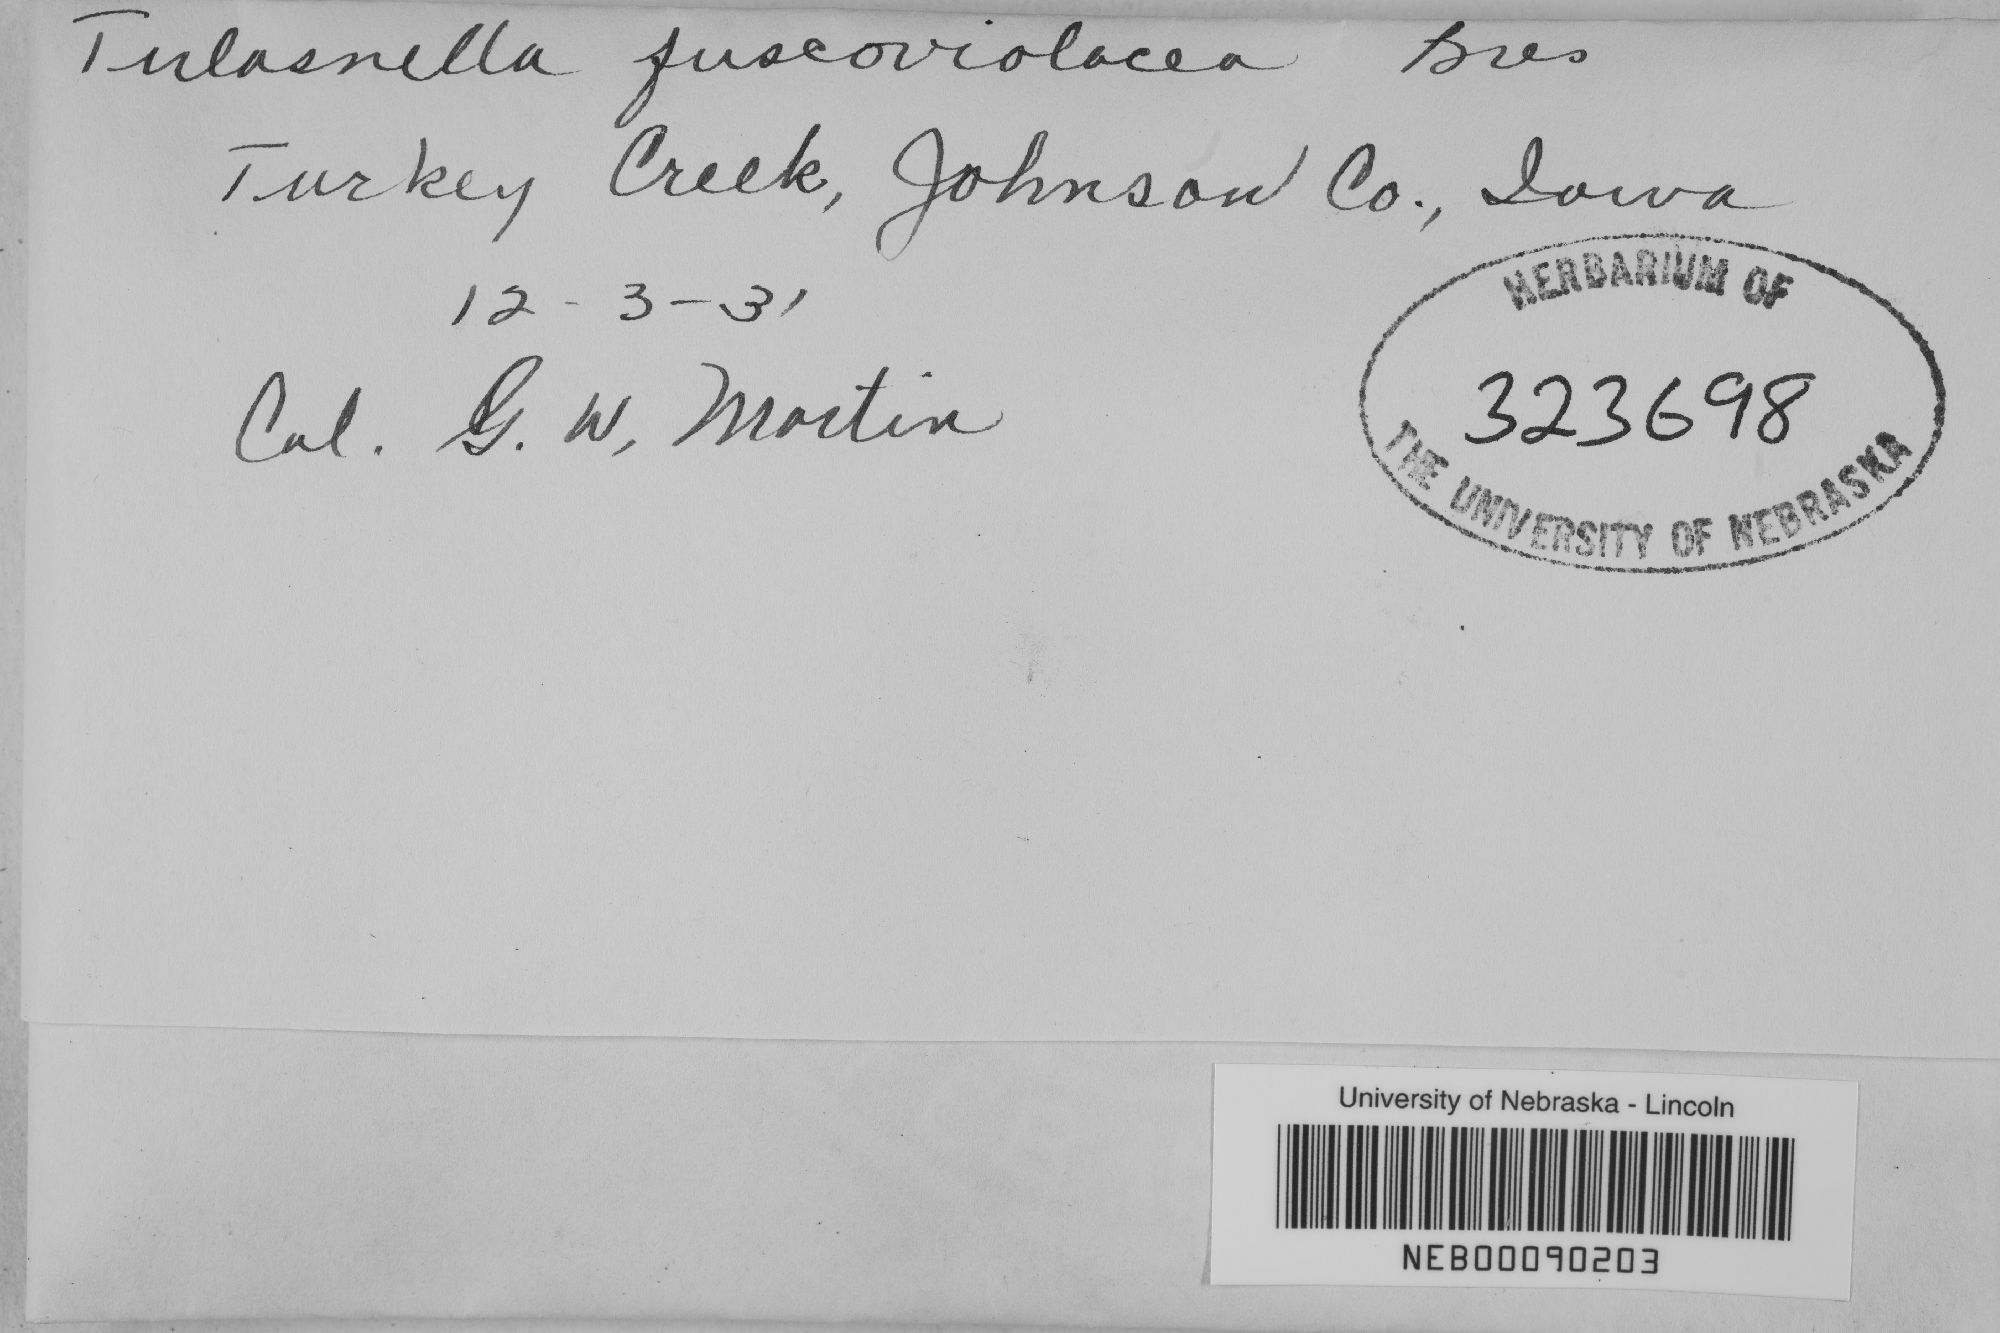 Tulasnella fuscoviolacea Bres
Turkey Creek, Johnson Co., Iowa
12-3-31
Col. G. W. Martin
HERBARIUM OF
323698
THE UNIVERSITY OF NEBRASKA
University of Nebraska - Lincoln
NEB00090203